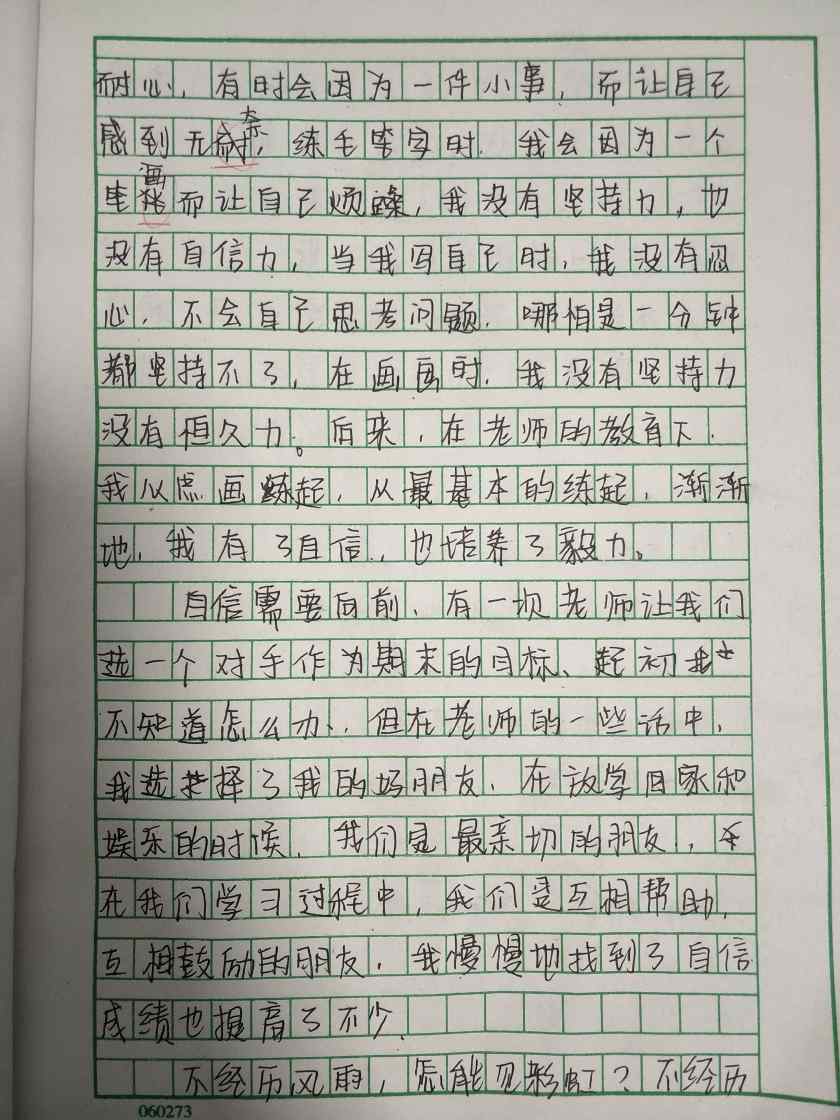 耐心，有时会因为一件小事，而让自己
感到无奈，练毛笔字时，我会因为一个
笔画而让自己烦躁，我没有坚持力，也
没有自信力，当我写自己时，我没有忍
心，不会自己思考问题，哪怕是一分钟
都坚持不了，在画画时，我没有坚持力
没有恒久力。后来，在老师的教育下，
我从点画练起，从最基本的练起，渐渐
地，我有了自信，也培养了毅力。
自信需要向前，有一次老师让我们
选一个对手作为期末的目标、起初我
不知道怎么办，但在老师的一些话中，
我选择了我的好朋友，在放学回家和
娱乐的时候，我们是最亲切的朋友，
在我们学习过程中，我们是互相帮助，
互相鼓励的朋友，我慢慢地找到了自信
成绩也提高了不少，
不经历风雨，怎能见彩虹？不经历
060273